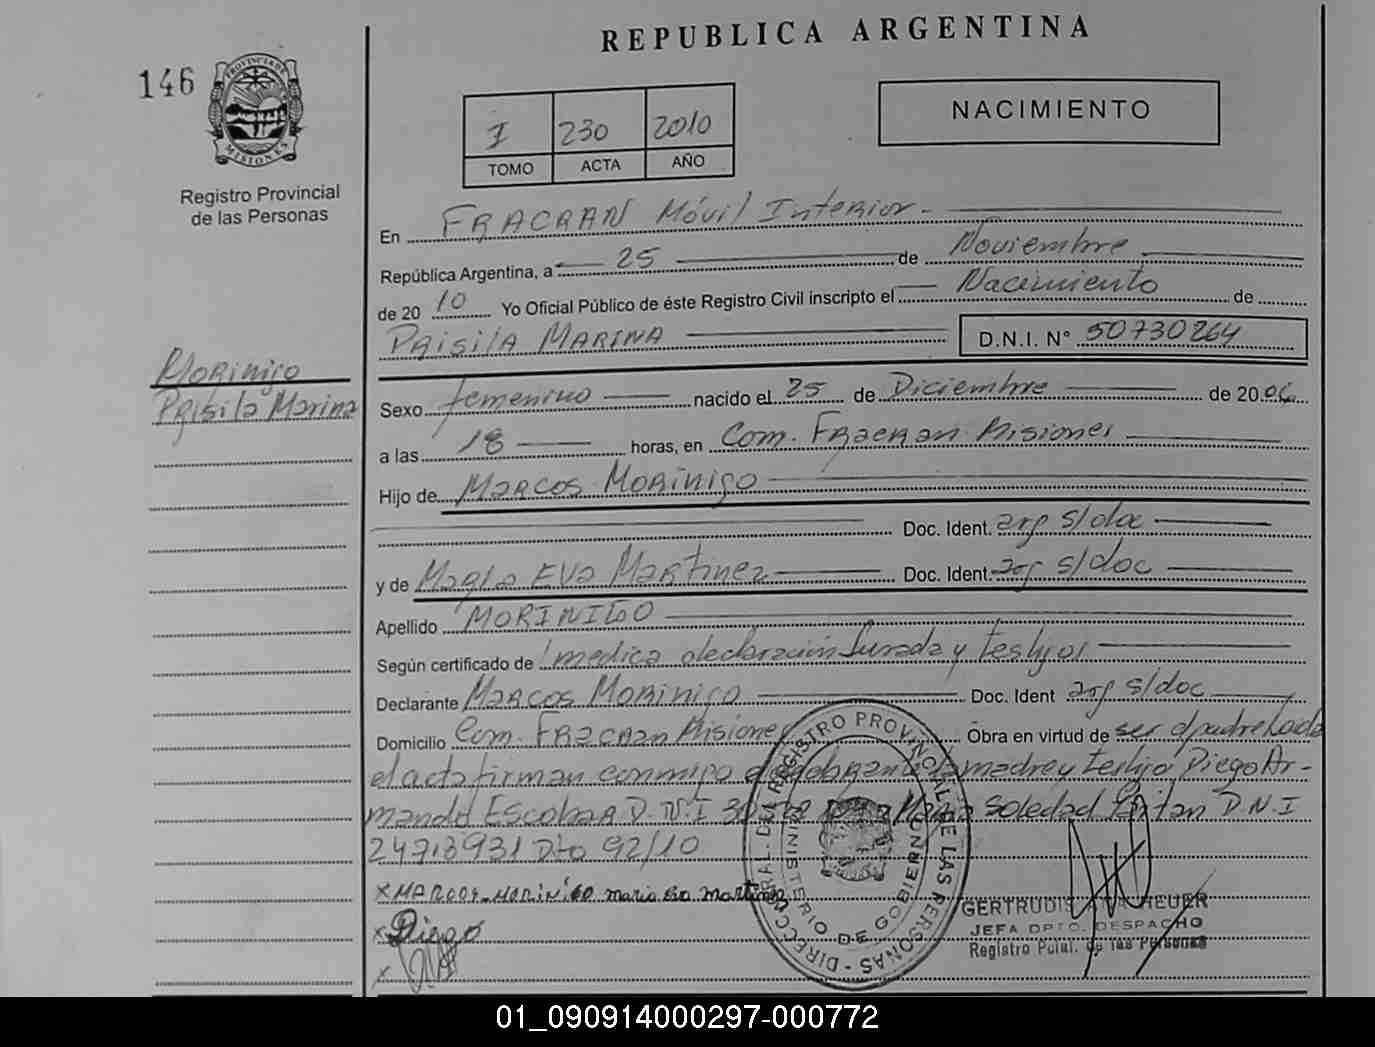 REPUBLICA ARGENTINA
146
PROVINCIA DE MISIONES
Registro Provincial
de las Personas
I 230 2010
TOMO ACTA AÑO
NACIMIENTO
En FRACRAN Móvil Interior
República Argentina, a 25 de Noviembre
de 2010 Yo Oficial Público de éste Registro Civil inscripto el Nacimiento de
PRISILA MARINA D.N.I. Nº 50730264
Morinigo
Prisila Marina
Sexo femenino nacido el 25 de Diciembre de 2006
a las 18 horas, en Com. Fracran Misiones
Hijo de MARCOS MORINIGO
Doc. Ident. arg s/doc
y de Maria EVA Martinez Doc. Ident. arg s/doc
Apellido MORINIGO
Según certificado de medica declaración Jurada y testigos
Declarante MARCOS MORINIGO Doc. Ident arg s/doc
Domicilio Com. Fracran Misiones Obra en virtud de ser el padre
el acta firman conmigo el madre y testigo Diego Ar-
mando Escobar D.N.I Maria Soledad D.N.I
24713931 Dto 92/10
x MARCOS MORINIGO maria Eva martinez
x Diego
x
DIRECC GRAL. DEL REGISTRO PROVINCIAL DE LAS PERSONAS
MINISTERIO DE GOBIERNO
GERTRUDIS
JEFA DPTO. DESPACHO
Registro Pcial. de las Personas
01_090914000297-000772